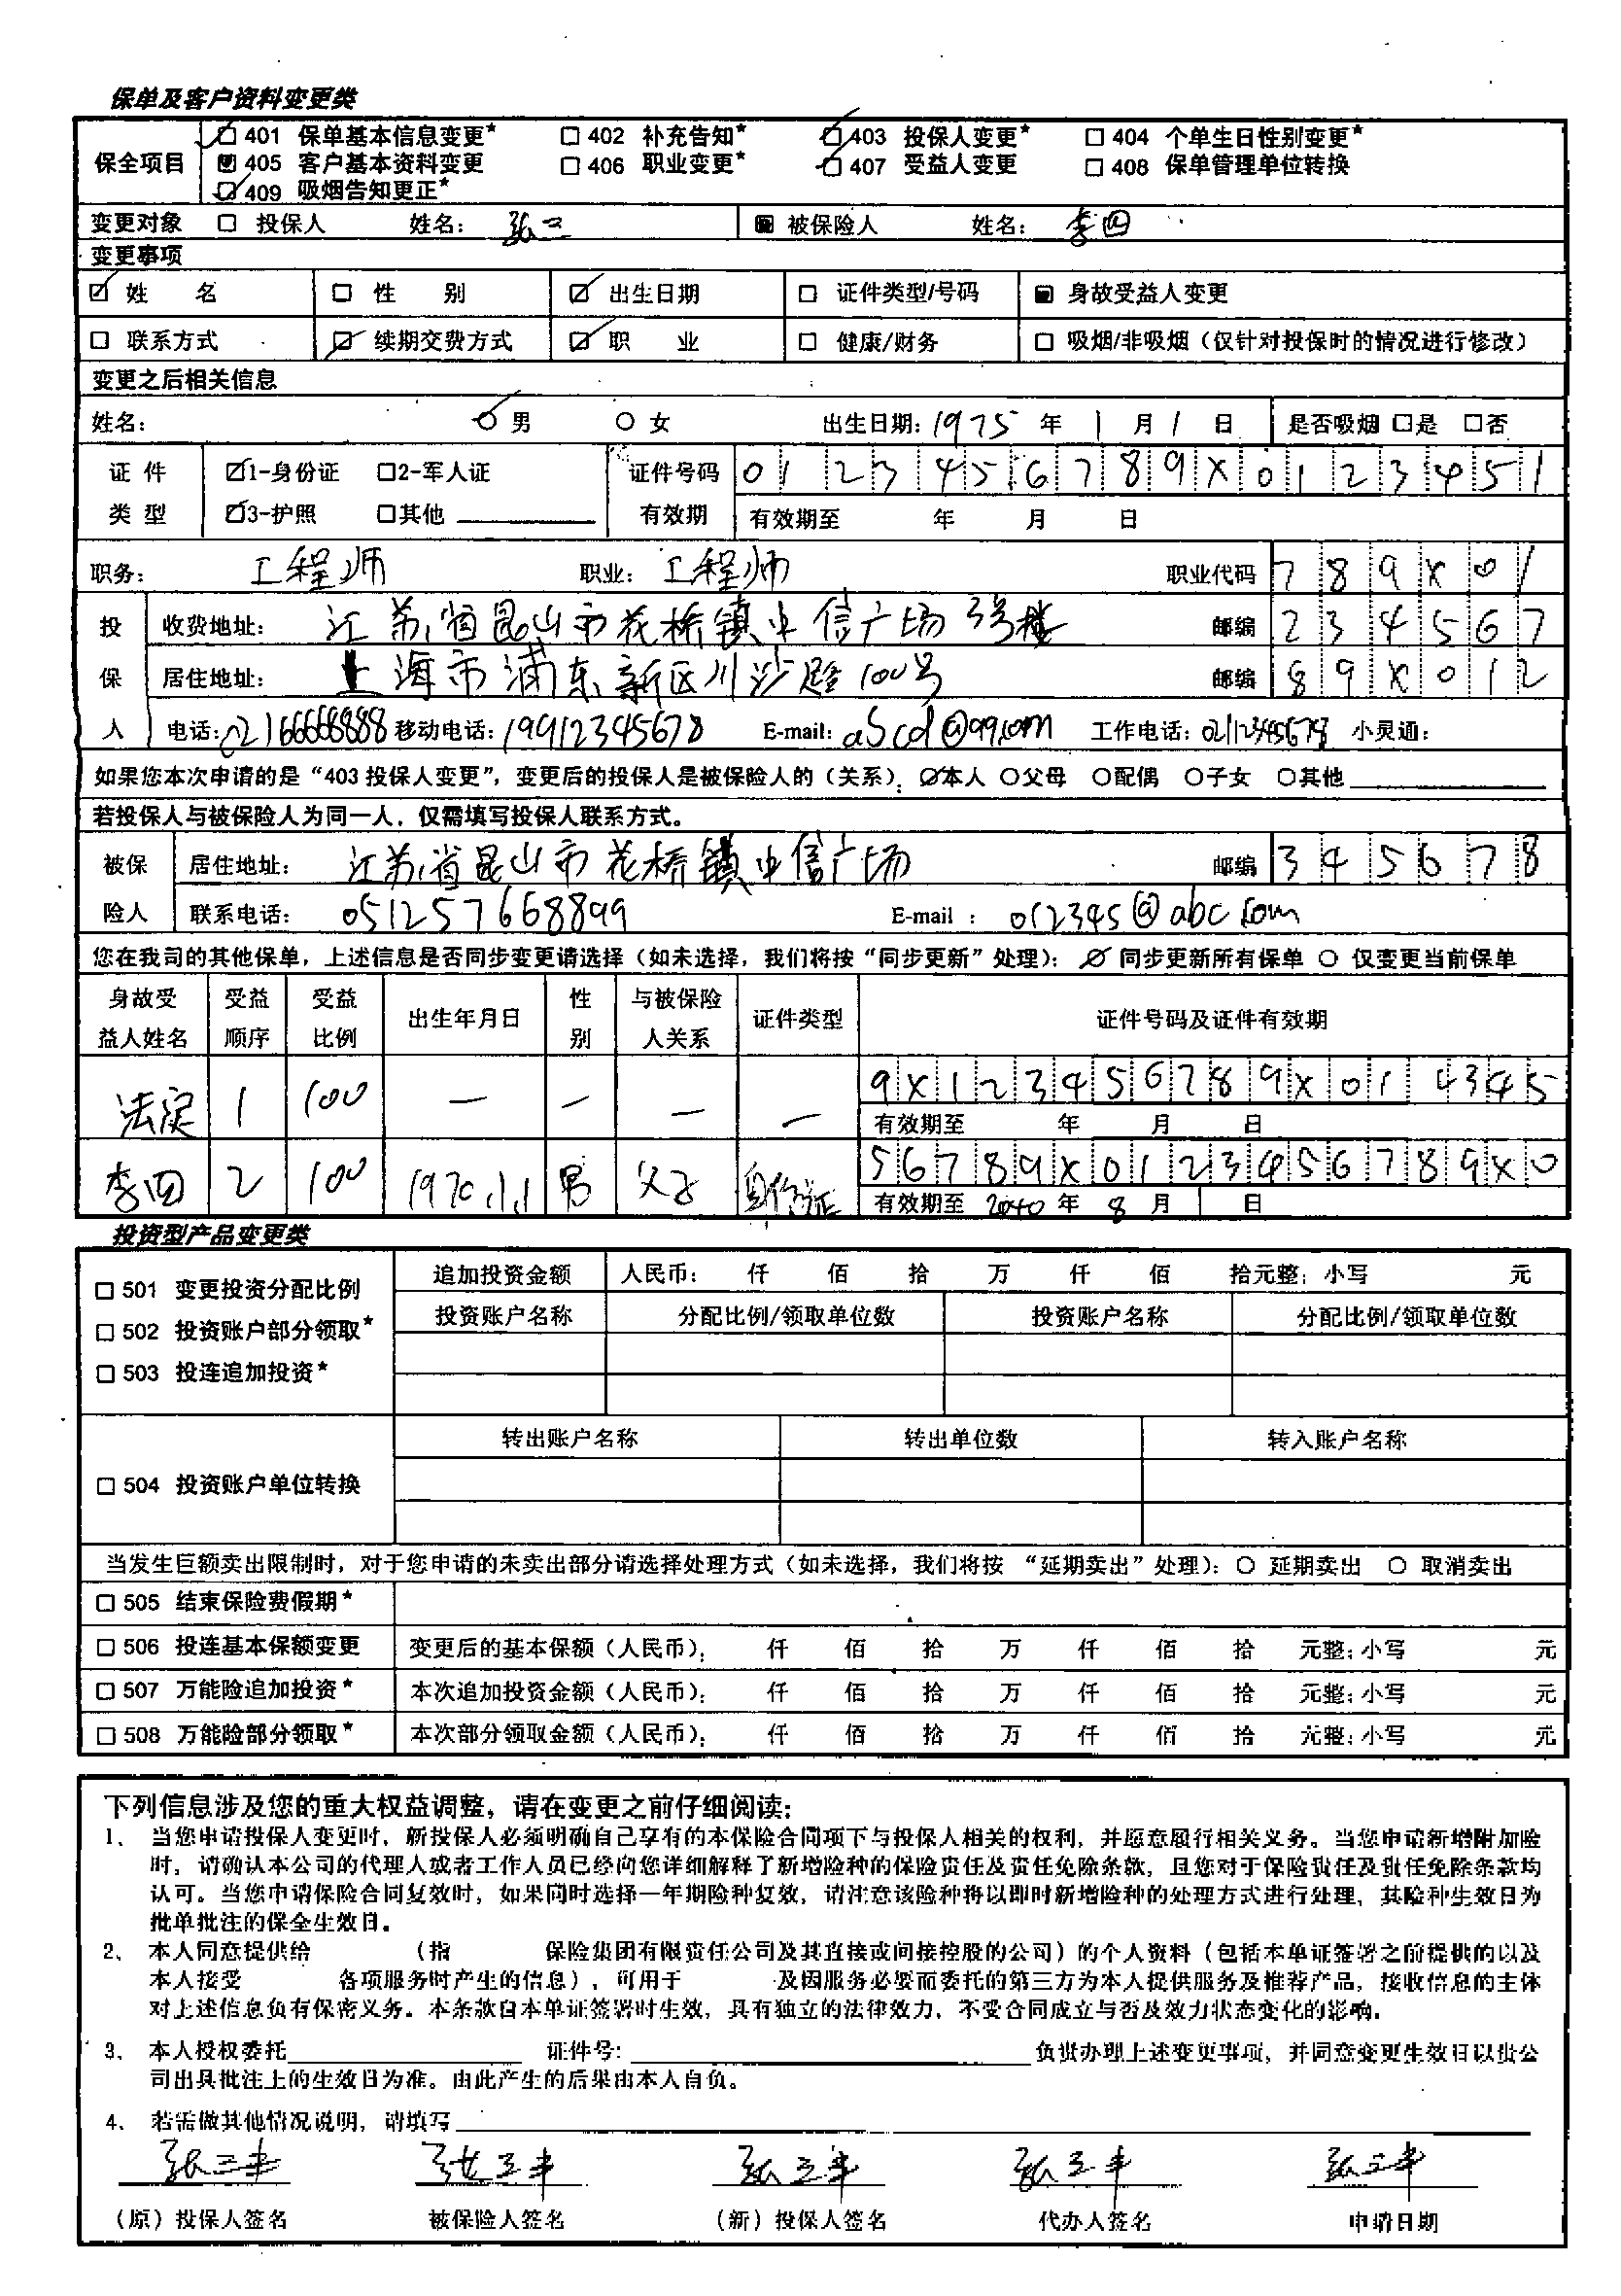 保单及客户资料变更类
保全项目 ☑401 保单基本信息变更* ☐402 补充告知* ☑403 投保人变更* ☐404 个单生日性别变更*
☑405 客户基本资料变更 ☐406 职业变更* ☑407 受益人变更 ☐408 保单管理单位转换
☑409 吸烟告知更正*
变更对象 ☐ 投保人 姓名： 张三 ☑ 被保险人 姓名： 李四
变更事项
☑ 姓 名 ☐ 性 别 ☑ 出生日期 ☐ 证件类型/号码 ☑ 身故受益人变更
☐ 联系方式 ☑ 续期交费方式 ☑ 职 业 ☐ 健康/财务 ☐ 吸烟/非吸烟（仅针对投保时的情况进行修改）
变更之后相关信息
姓名： ☑ 男 ○ 女 出生日期：1975 年 1 月 1 日 是否吸烟 ☐是 ☐否
证件类型 ☑1-身份证 ☐2-军人证 证件号码 0123456789X0123451
☑3-护照 ☐其他 有效期 有效期至 年 月 日
职务： 工程师 职业： 工程师 职业代码 789X01
投保人 收费地址： 江苏省昆山市花桥镇中信广场3号楼 邮编 234567
居住地址： 上海市浦东新区川沙路100号 邮编 89X012
电话：02166668888 移动电话：19912345678 E-mail：abcd@qq.com 工作电话：02112345678 小灵通：
如果您本次申请的是“403 投保人变更”，变更后的投保人是被保险人的（关系）：☑本人 ○父母 ○配偶 ○子女 ○其他
若投保人与被保险人为同一人，仅需填写投保人联系方式。
被保险人 居住地址： 江苏省昆山市花桥镇中信广场 邮编 345678
联系电话： 051257668899 E-mail ： 012345@abc.com
您在我司的其他保单，上述信息是否同步变更请选择（如未选择，我们将按“同步更新”处理）：☑ 同步更新所有保单 ○ 仅变更当前保单
身故受益人姓名 受益顺序 受益比例 出生年月日 性别 与被保险人关系 证件类型 证件号码及证件有效期
法定 1 100 — — — — 9X123456789X01 4345
有效期至 年 月 日
李四 2 100 1970.1.1 男 父子 身份证 56789X0123456789X0
有效期至 2040 年 8 月 1 日
投资型产品变更类
☐ 501 变更投资分配比例 追加投资金额 人民币： 仟 佰 拾 万 仟 佰 拾元整；小写 元
☐ 502 投资账户部分领取* 投资账户名称 分配比例/领取单位数 投资账户名称 分配比例/领取单位数
☐ 503 投连追加投资*
☐ 504 投资账户单位转换 转出账户名称 转出单位数 转入账户名称
当发生巨额卖出限制时，对于您申请的未卖出部分请选择处理方式（如未选择，我们将按 “延期卖出”处理）：○ 延期卖出 ○ 取消卖出
☐ 505 结束保险费假期*
☐ 506 投连基本保额变更 变更后的基本保额（人民币）： 仟 佰 拾 万 仟 佰 拾 元整；小写 元
☐ 507 万能险追加投资* 本次追加投资金额（人民币）： 仟 佰 拾 万 仟 佰 拾 元整；小写 元
☐ 508 万能险部分领取* 本次部分领取金额（人民币）： 仟 佰 拾 万 仟 佰 拾 元整；小写 元
下列信息涉及您的重大权益调整，请在变更之前仔细阅读：
1、 当您申请投保人变更时，新投保人必须明确自己享有的本保险合同项下与投保人相关的权利，并愿意履行相关义务。当您申请新增附加险
时，请确认本公司的代理人或者工作人员已经向您详细解释了新增险种的保险责任及责任免除条款，且您对于保险责任及责任免除条款均
认可。当您申请保险合同复效时，如果同时选择一年期险种复效，请注意该险种将以即时新增险种的处理方式进行处理，其险种生效日为
批单批注的保全生效日。
2、 本人同意提供给 （指 保险集团有限责任公司及其直接或间接控股的公司）的个人资料（包括本单证签署之前提供的以及
本人接受 各项服务时产生的信息），可用于 及因服务必要而委托的第三方为本人提供服务及推荐产品，接收信息的主体
对上述信息负有保密义务。本条款自本单证签署时生效，具有独立的法律效力，不受合同成立与否及效力状态变化的影响。
3、 本人授权委托 证件号: 负责办理上述变更事项，并同意变更生效日以贵公
司出具批注上的生效日为准。由此产生的后果由本人自负。
4、 若需做其他情况说明，请填写
张三丰 张三丰 张三丰 张三丰 张三丰
（原）投保人签名 被保险人签名 （新）投保人签名 代办人签名 申请日期